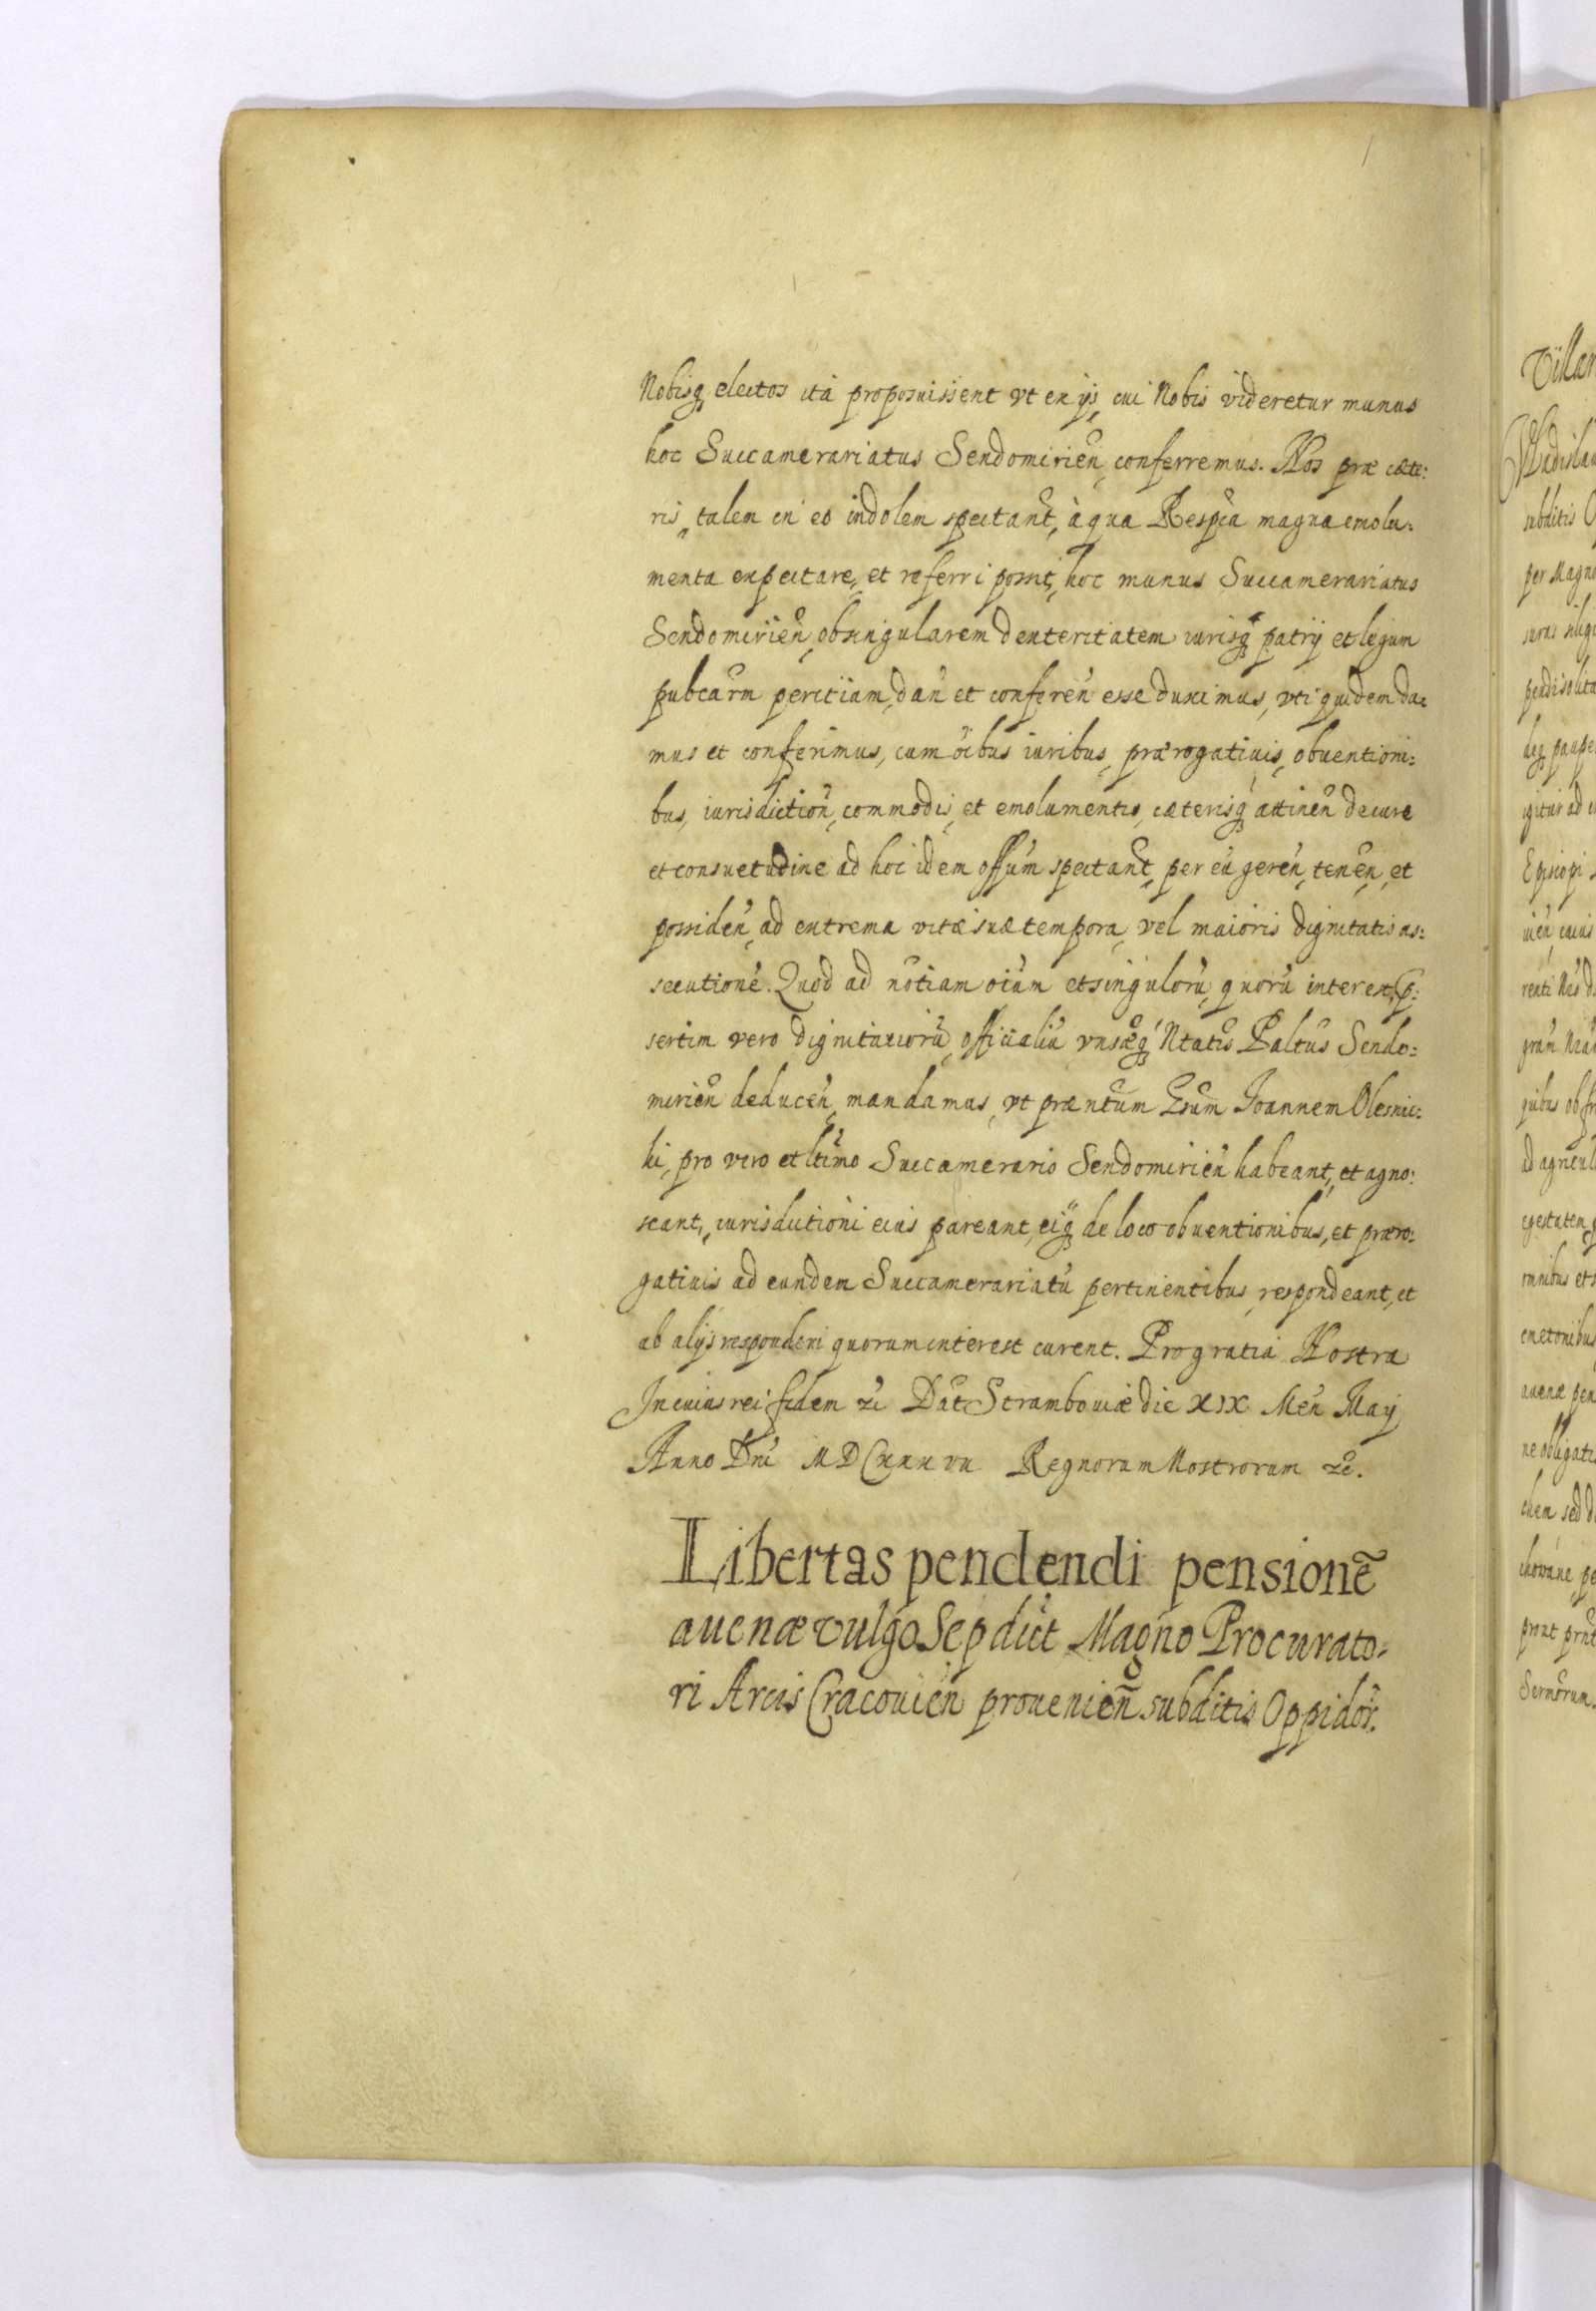 Nobisq; electos ità proposuissent vt ex ijs, cui Nobis videretur munus
hoc Succamerariatus Sendomirien̄, conferremus. Nos præ cæte:
ris, talem in eo indolem spectant̄, à qua Respca magna emolu:
menta expectare, et referri possit, hoc munus Succamerariatus
Sendomirien̄, ob singularem dexteritatem iurisq; patrij et legum
pubcarm peritiam, dan̄ et conferen̄ esse duximus, vti quidem da:
mus et conferimus, cum oībus iuribus, prærogatiuis, obuentioni:
bus, iurisdiction̄, commodis, et emolumentis, cæterisq; attinen̄ de iure
et consuetudine ad hoc idem offūm spectant̄, per eū geren̄, tenen̄, et
possiden̄, ad extrema vitæ suæ tempora, vel maioris dignitatis as:
secutionē. Quod ad nōtiam oīum et singulorū, quorū interest, p:
sertim vero dignitariorū, officialiū vnsæq; Ntatis Paltūs Sendo:
mirien̄ deducen̄, mandamus, vt præntum Gsum Joannem Olesnic:
ki, pro vero et ltīmo Succamerario Sendomirien̄ habeant, et agno:
scant, iurisdictioni eius pareant, eiq; de loco obuentionibus, et præro:
gatiuis ad eundem Succamerariatū pertinentibus, respondeant, et
ab alijs responderi quorum interest curent. Pro gratia Nostra
In cuius rei fidem zc Dat Strambouiæ die XIX Men̄ Maij
Anno Dni MDCxxxvii Regnorum Nostrorum zc.
Libertas pendendi pensionē
auenæ vulgo Sep dict Magno Procurato-
ri Arcis Cracouien̄ prouenien̄ subditis Oppidor.